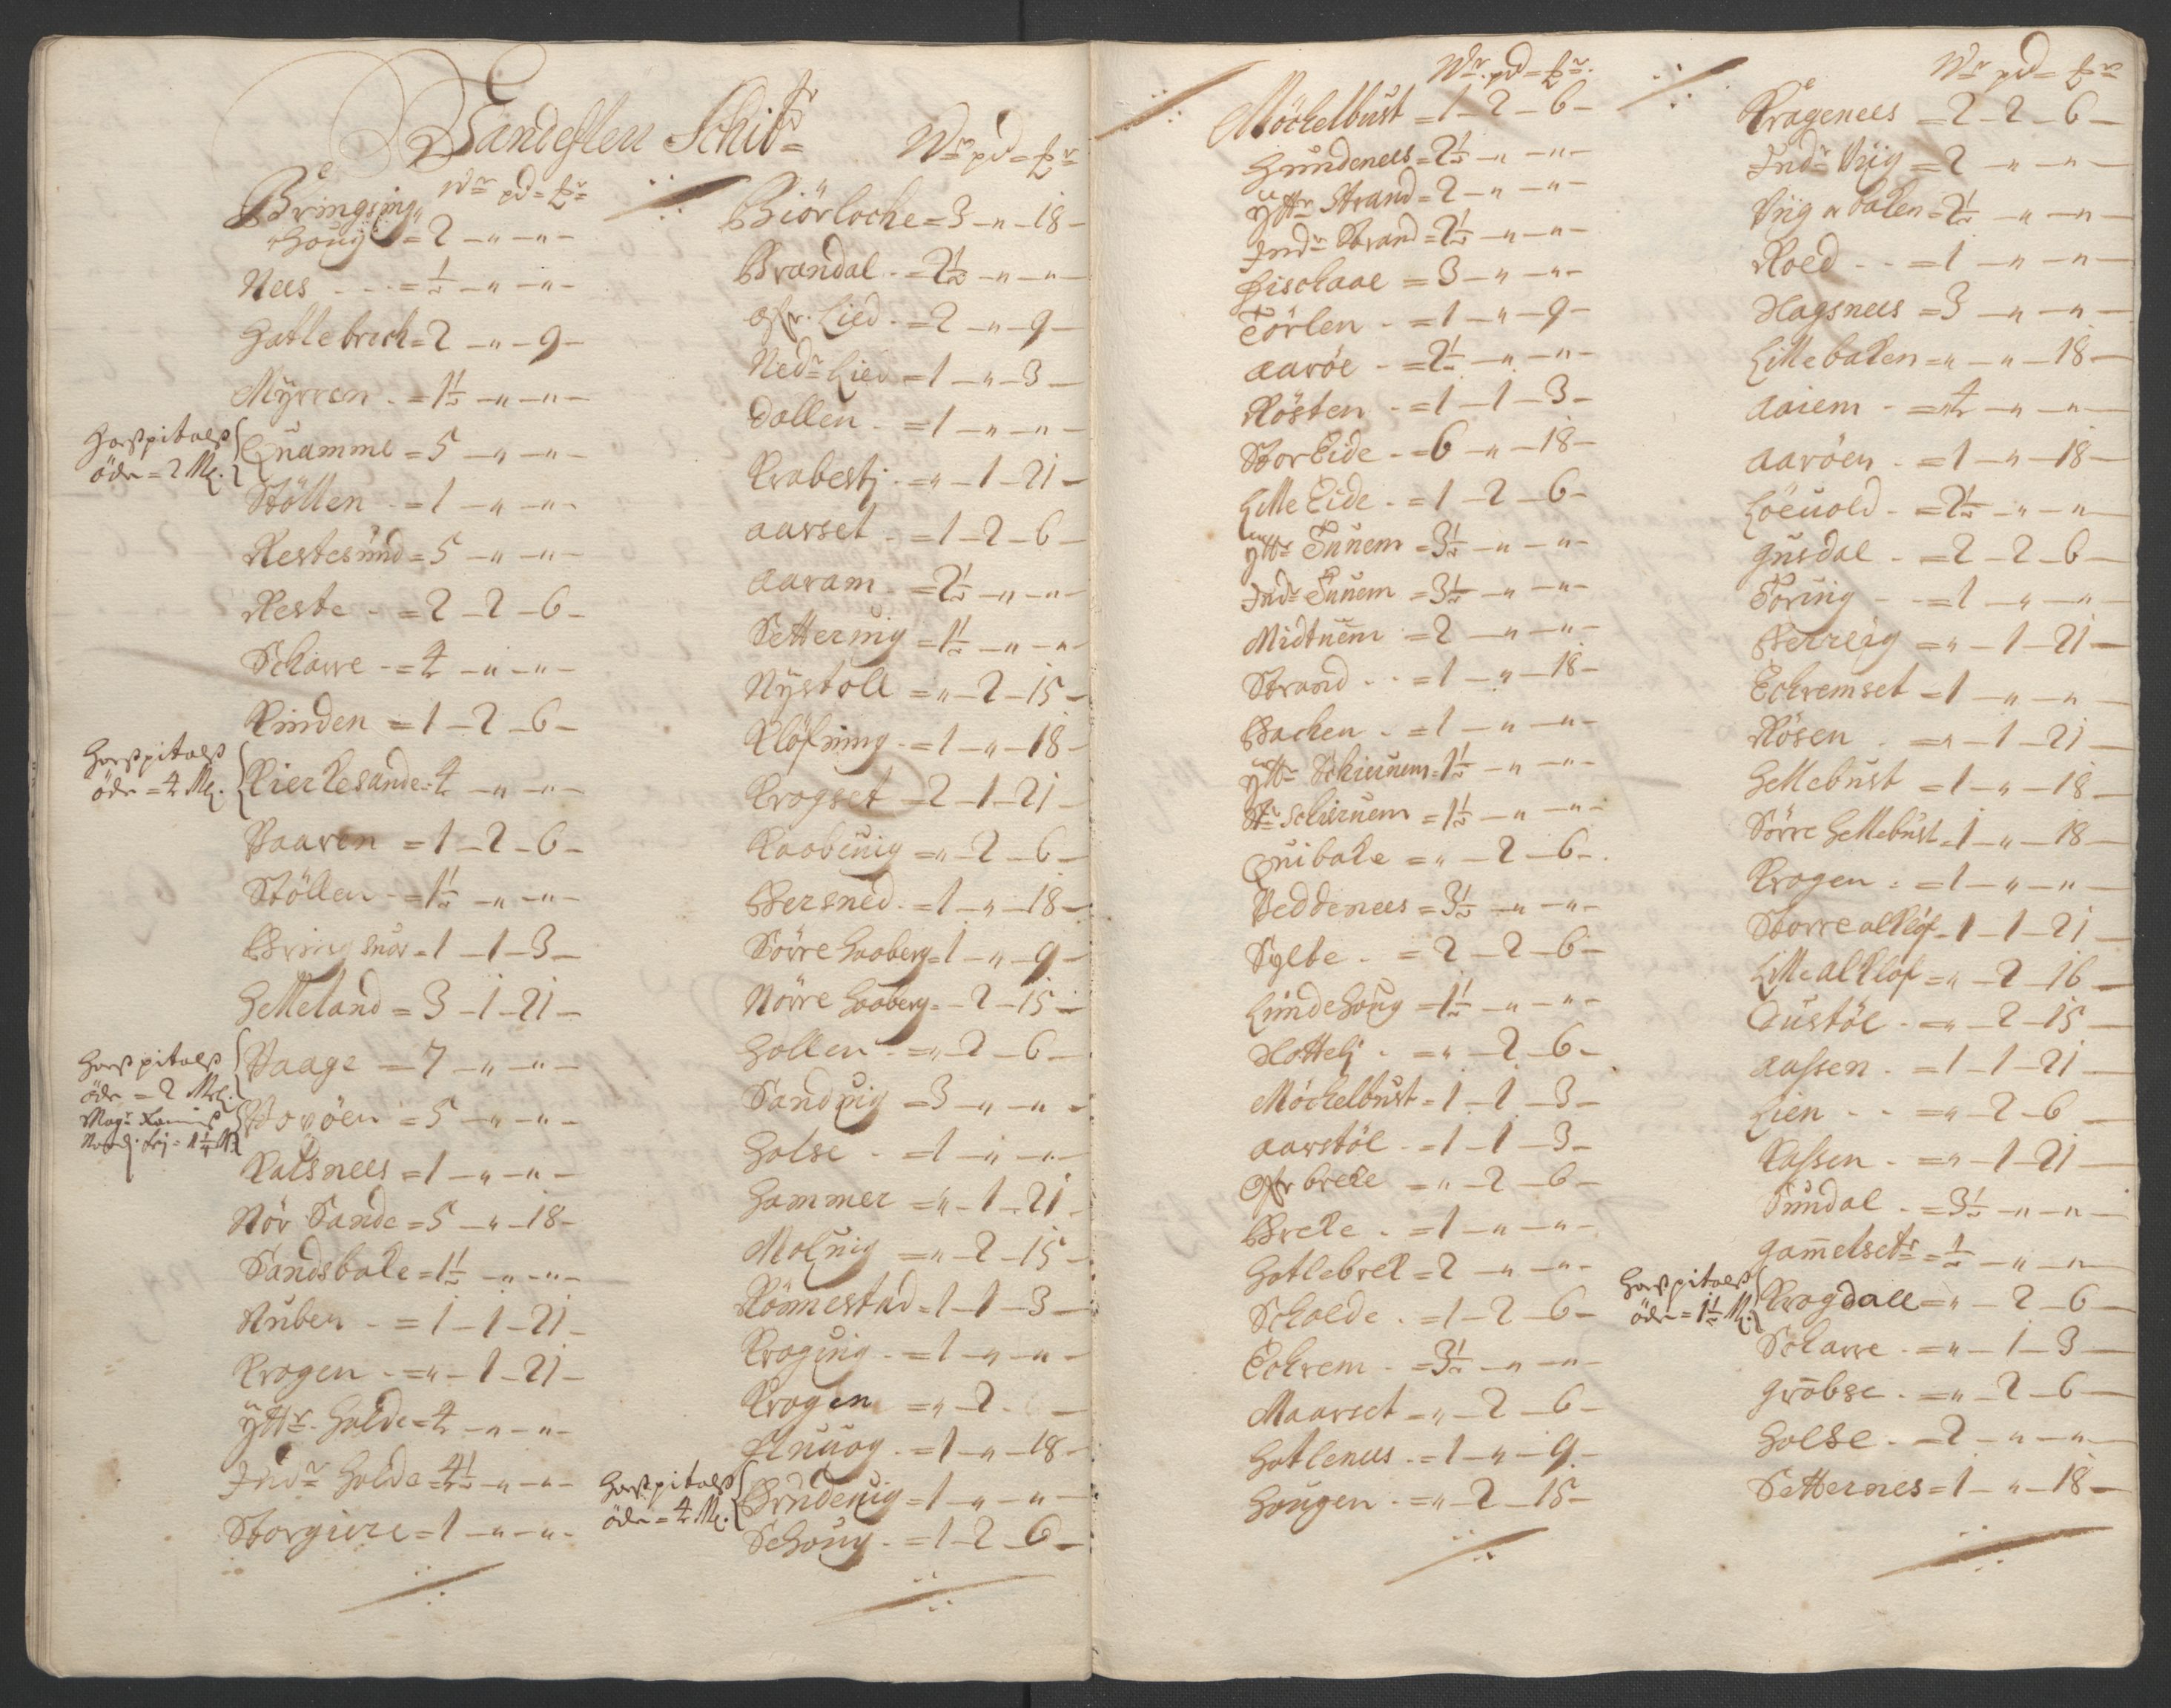 Sandeslen Schibr
Wr pd = £r
Bringsing
houg = 2 – „ – „ –
Nees - - - = ½ – „ – „ –
Hatlebrech = 2 – „ – 9 –
Myrren - = 1½ – „ – „ –
Hospitals
öde = 2 Ml.
Quamme = 5 – „ – „ –
Stöllen - = 1 – „ – „ –
Kestesund = 5 – „ – „ –
Keste - = 2 – 2 – 6 –
Scharre - = 4 – „ – „ –
Rinden = 1 – 2 – 6 –
Hospitals
öde = 4 Ml.
Kierkesande = 4 – „ – „ –
Vaaren = 1 – 2 – 6 –
Stöllen - = 1½ – „ – „ –
Bringsuor = 1 – 1 – 3 –
Helleland = 3 – 1 – 21 –
Hospitals
öde = 2 Ml.
Vaage = 7 – „ – „ –
Voxöen = 5 – „ – „ –
Kalsnees = 1 – „ – „ –
Nör Sande = 5 – „ – 18 –
Sandsbake = 1½ – „ – „ –
Nuben - = 1 – 1 – 21 –
Krogen - = „ – 1 – 21 –
Yttr Holde = 4 – „ – „ –
Indr Holde = 4½ – „ – „ –
Storgiere = 1 – „ – „ –
Wr pd = £r
Biörloche = 3 – „ – 18 –
Brandal - = 2½ – „ – „ –
Ofr. Lied - = 2 – „ – 9 –
Nedr Lied = 1 – „ – 3 –
Dallen - = 1 – „ – „ –
Krabestj - = „ – 1 – 21 –
Aarset - = 1 – 2 – 6 –
Aaram - = 2½ – „ – „ –
Setteruig = 1½ – „ – „ –
Nystöll = „ – 2 – 15 –
Klöfning - = 1 – „ – 18 –
Krogset = 2 – 1 – 21 –
Kaabeuig = „ – 2 – 6 –
Bersned - = 1 – „ – 18 –
Sörre Haaberg = 1 – „ – 9 –
Nörre Haaberg = – 2 – 15 –
Hollen - = „ – 2 – 6 –
Sanduig = 3 – „ – „ –
Holse - = 1 – „ – „ –
Hammer = „ – 1 – 21 –
Moluig = „ – 2 – 15 –
Rönnestad = 1 – 1 – 3 –
Kroguig - = 1 – „ – „ –
Krogen = „ – 2 – –
Fluuog - = 1 – „ – 18 –
Hospitals
öde = 4 Ml.
Brudeuig = 1 – „ – „ –
Sehoug - = 1 – 2 – 6 –
Wr pd = £r
Möchelbust = 1 – 2 – 6 –
Hundenees = 2½ – „ – „ –
Yttr Strand = 2 – „ – „ –
Indr Strand = 2½ – „ – „ –
Fischaae = 3 – „ – „ –
Törlen - = 1 – „ – 9 –
Aaröe - = 2½ – „ – „ –
Rösten - = 1 – 1 – 3 –
Stor Eide - = 6 – „ – 18 –
Lille Eide - = 1 – 2 – 6 –
Yttr Tunem = 3½ – „ – „ –
Indr Tunem = 3½ – „ – „ –
Midtuem = 2 – „ – „ –
Strand - - = 1 – „ – 18 –
Bachen - = 1 – „ – „ –
Yttr Schieruem = 1½ – „ – „ –
Schieruem = 1½ – „ – „ –
Quibake = „ – 2 – 6 –
Veddenees = 3½ – „ – „ –
Sylte - = 2 – 2 – 6 –
Lindehoug = 1½ – „ – „ –
Slottelj - = „ – 2 – 6 –
Möchelbust = 1 – 1 – 3 –
Aarstöl - = 1 – 1 – 3 –
Ofr breke = „ – 2 – 6 –
Breke - = 1 – „ – „ –
Hatlebrek = 2 – „ – „ –
Schoede - = 1 – 2 – 6 –
Echrem - = 3½ – „ – „ –
Maarset = „ – 2 – 6 –
Hatlenus - = 1 – „ – 9 –
Hougen - = „ – 2 – 15 –
Wr pd = £r
Kragenees = 2 – 2 – 6 –
Indr Viig = 2 – „ – „ –
Viig a baken = 2½ – „ – „ –
Roed - - = 1 – „ – „ –
Slagsnees = 3 – „ – „ –
Lillebaken = „ – „ – 18 –
Aaiem - = 4 – „ – „ –
Aaröen - = 1 – „ – 18 –
Löeuold - = 2½ – „ – „ –
Gusdal - = 2 – 2 – 6 –
Töring - - = 1 – „ – „ –
Berreig = „ – 1 – 21 –
Echremset = 1 – „ – „ –
Rösen - = „ – 1 – 21 –
Hellebust = 1 – „ – 18 –
Sörre Hellebust = 1 – „ – 18 –
Krogen - = 1 – „ – „ –
Storre alklöf = 1 – 1 – 21 –
Lille alklöf = „ – 2 – 16 –
Dustöl - = „ – 2 – 15 –
Aassen - = 1 – 1 – 21 –
Lien - - = „ – 2 – 6 –
Kassen - = „ – 1 – 21 –
Sundal - = 3½ – „ – „ –
Gamelsetr = ½ – „ – „ –
Hospitals
öde = 1½ Ml.
Krogdall = „ – 2 – 6 –
Scharre - = „ – 1 – 3 –
Gröbse - = „ – 2 – 6 –
Holse - = 2 – „ – „ –
Setternes = 1 – „ – 18 –